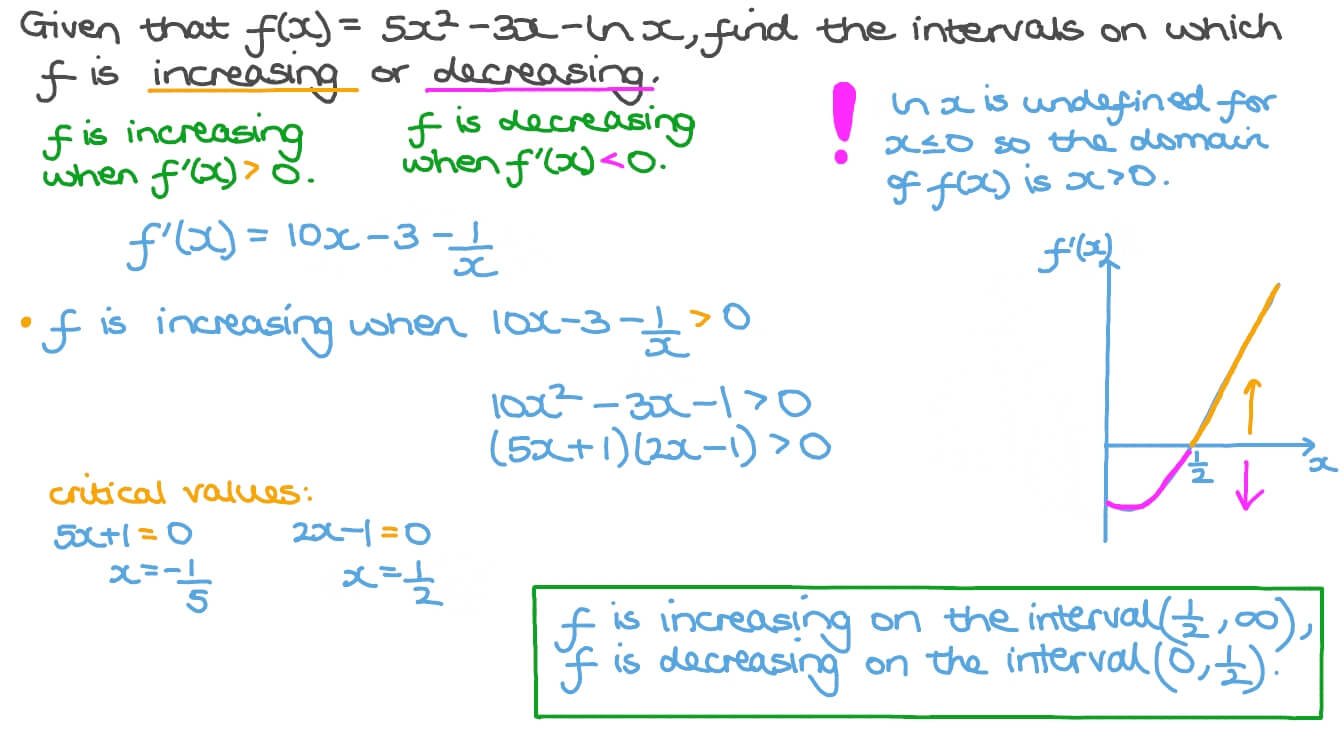 Given that f(x) = 5x² - 3x - ln x, find the intervals on which
f is increasing or decreasing.
f is increasing
when f'(x) > 0.
f is decreasing
when f'(x) < 0.
!
ln x is undefined for
x ≤ 0 so the domain
of f(x) is x > 0.
f'(x) = 10x - 3 - 1/x
• f is increasing when 10x - 3 - 1/x > 0
10x² - 3x - 1 > 0
(5x + 1)(2x - 1) > 0
critical values:
5x + 1 = 0
x = -1/5
2x - 1 = 0
x = 1/2
f'(x)
1/2
x
f is increasing on the interval (1/2, ∞),
f is decreasing on the interval (0, 1/2).